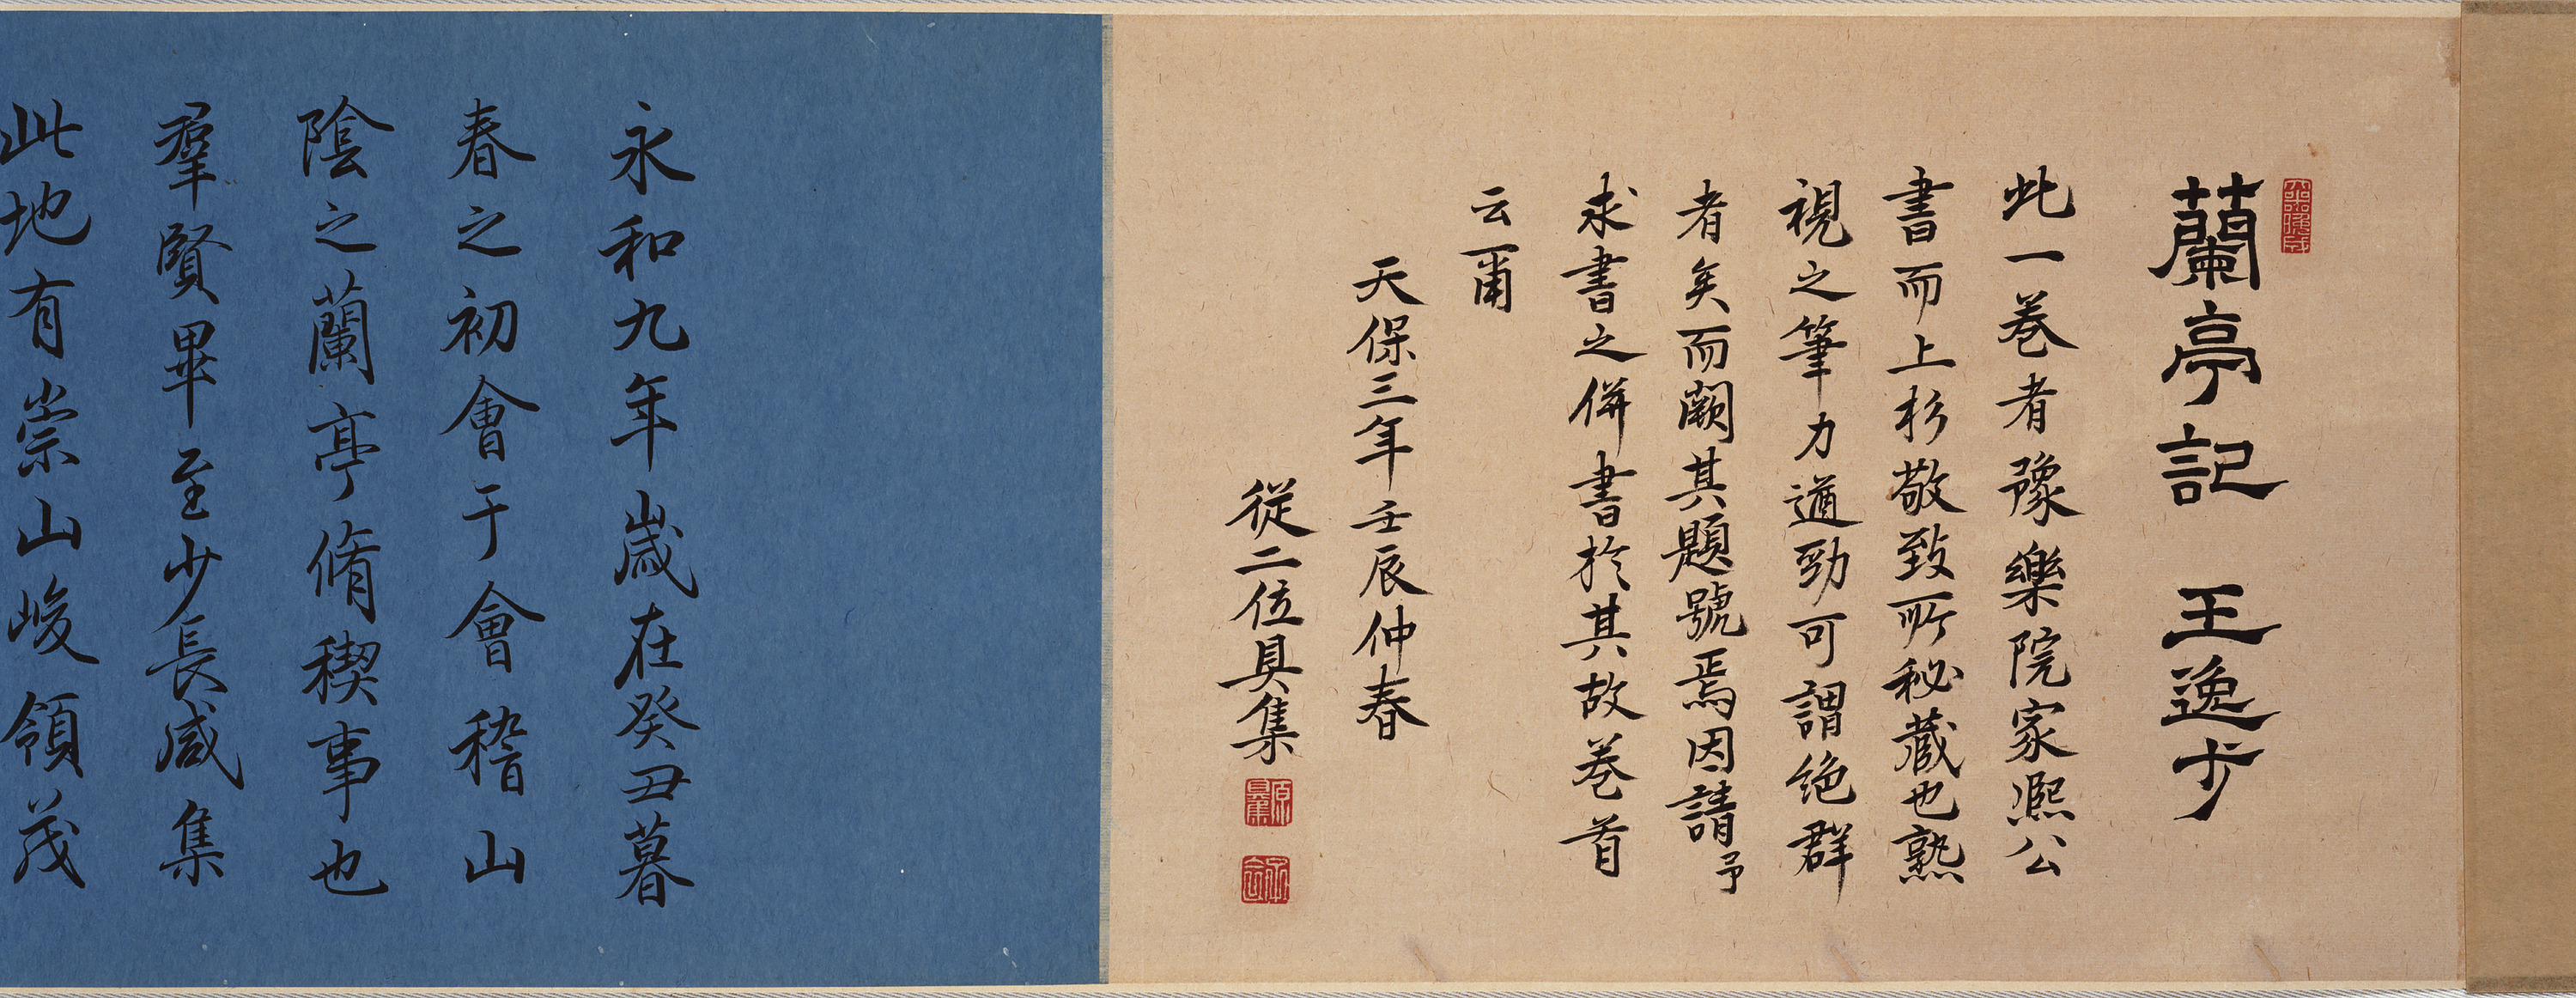 蘭亭記 王逸少
此一巻者豫樂院家熈公
書而上杉敬致所秘蔵也熟
視之筆力遒勁可謂絶群
者矣而闕其題號焉因請予
求書之併書於其故巻首
云爾
天保三年壬辰仲春
従二位具集
永和九年歳在癸丑暮
春之初會于會稽山
陰之蘭亭脩稧事也
羣賢畢至少長咸集
此地有崇山峻領茂